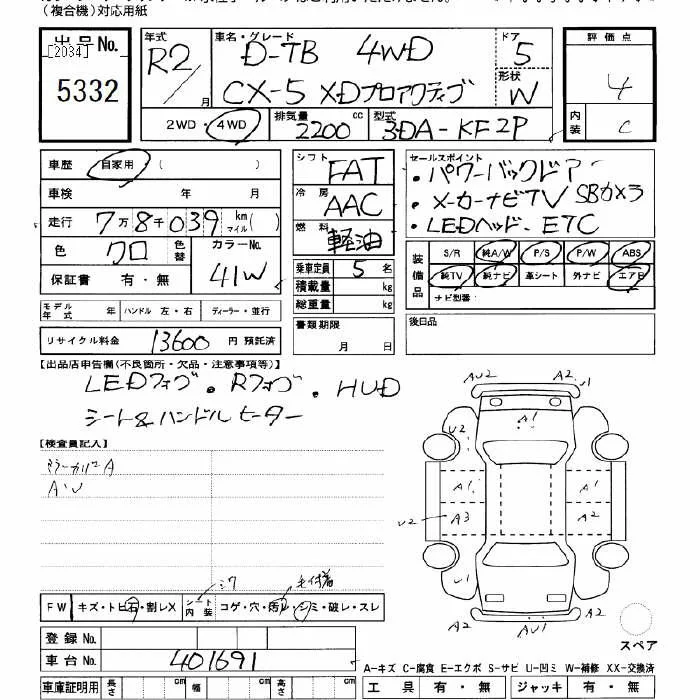 （複合機）対応用紙
出品No.
[2034]
5332
年式 R2/ 月
車名・グレード D-TB 4WD
CX-5 XDプロアクティブ
ドア 5
形状 W
評価点
4
内装 C
2WD・4WD
排気量 2200 cc
型式 3DA-KF2P
車歴 自家用 ( )
車検 年 月
走行 7万8千039 km マイル( )
色 クロ 色替 カラーNo. 41W
保証書 有・無
シフト FAT
冷房 AAC
燃料 軽油
乗車定員 5名
積載量 kg
総重量 kg
書類期限
月 日
セールスポイント
・パワーバックドア
・メーカーナビTV SBカメラ
・LEDヘッド・ETC
装備品 S/R 純A/W P/S P/W ABS
純TV 純ナビ 革シート 外ナビ エアB
ナビ型番：
後日品
モデル年式 年 ハンドル 左・右 ディーラー・並行
リサイクル料金 13600 円 預託済
【出品店申告欄(不良箇所・欠品・注意事項等)】
LEDフォグ・Rフォグ・HUD
シート&ハンドルヒーター
【検査員記入】
A・U
FW キズ・トビ石・割レX シート内装 コゲ・穴・汚レ・シミ・破レ・スレ
シワ
登録No.
車台No. 401691
車庫証明用 長さ cm 幅 cm 高さ cm
A2
AU2
U1
A1
U2
A1
A1
U2
A3
A2
U1
A2
AU1
A2
スペア
A-キズ C-腐食 E-エクボ S-サビ U-凹ミ W-補修 XX-交換済
工具 有・無 ジャッキ 有・無